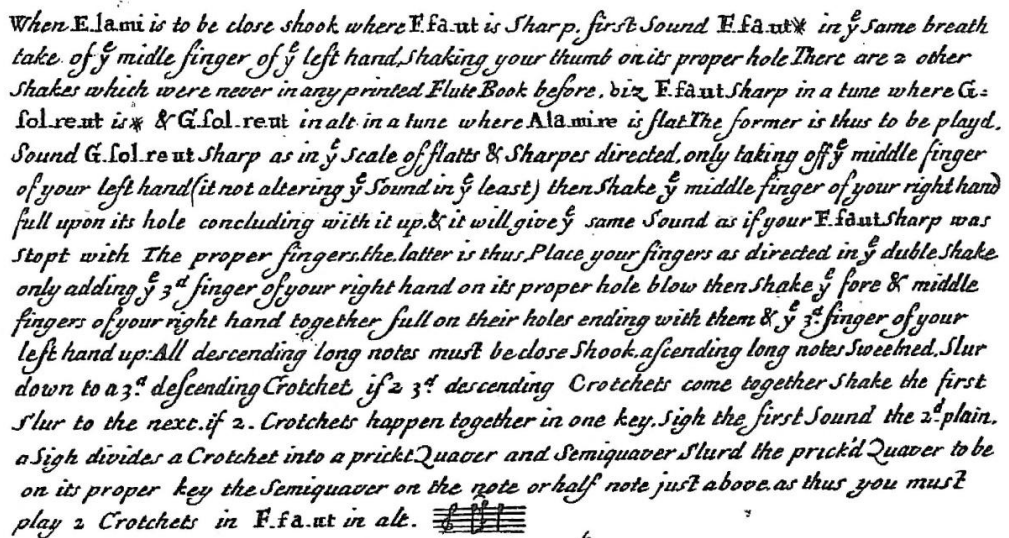 When E.la.mi is to be close shook where F.fa.ut is Sharp, first Sound F.fa.ut※ in yͤ Same breath
take of yͤ midle finger of yͤ left hand, Shaking your thumb on its proper hole There are 2 other
Shakes which were never in any printed Flute Book before. viz F.fa.ut Sharp in a tune where G=
sol.re.ut is※ & G.sol.re.ut in alt in a tune where Alamire is flat The former is thus to be playd.
Sound G.sol.re ut Sharp as in yͤ Scale of flatts & Sharpes directed, only taking off yͤ middle finger
of your left hand (it not altering yͤ Sound in yͤ least) then Shake yͤ middle finger of your right hand
full upon its hole concluding with it up, & it will give yͤ same Sound as if your F.fa.ut Sharp was
Stopt with The proper fingers. the latter is thus, Place your fingers as directed in yͤ duble Shake
only adding yͤ 3ᵈ finger of your right hand on its proper hole blow then Shake yͤ fore & middle
fingers of your right hand together full on their holes ending with them & yͤ 3ᵈ. finger of your
left hand up: All descending long notes must be close Shook, aſcending long notes Sweetned, Slur
down to a 3ᵈ. deſcending Crotchet, if 2 3ᵈ. descending Crotchets come together Shake the first
Slur to the next. if 2. Crotchets happen together in one key, Sigh the first Sound the 2ᵈ plain.
a Sigh divides a Crotchet into a prickt Quaver and Semiquaver Slurd the prick'd Quaver to be
on its proper key the Semiquaver on the note or half note just above. as thus you must
play 2 Crotchets in F.fa.ut in alt.